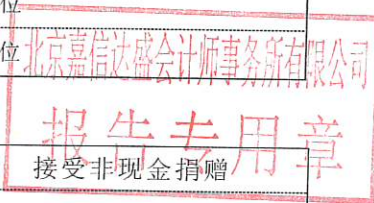 位
位
北京嘉信达盛会计师事务所有限公司
报告专用章
接受非现金捐赠